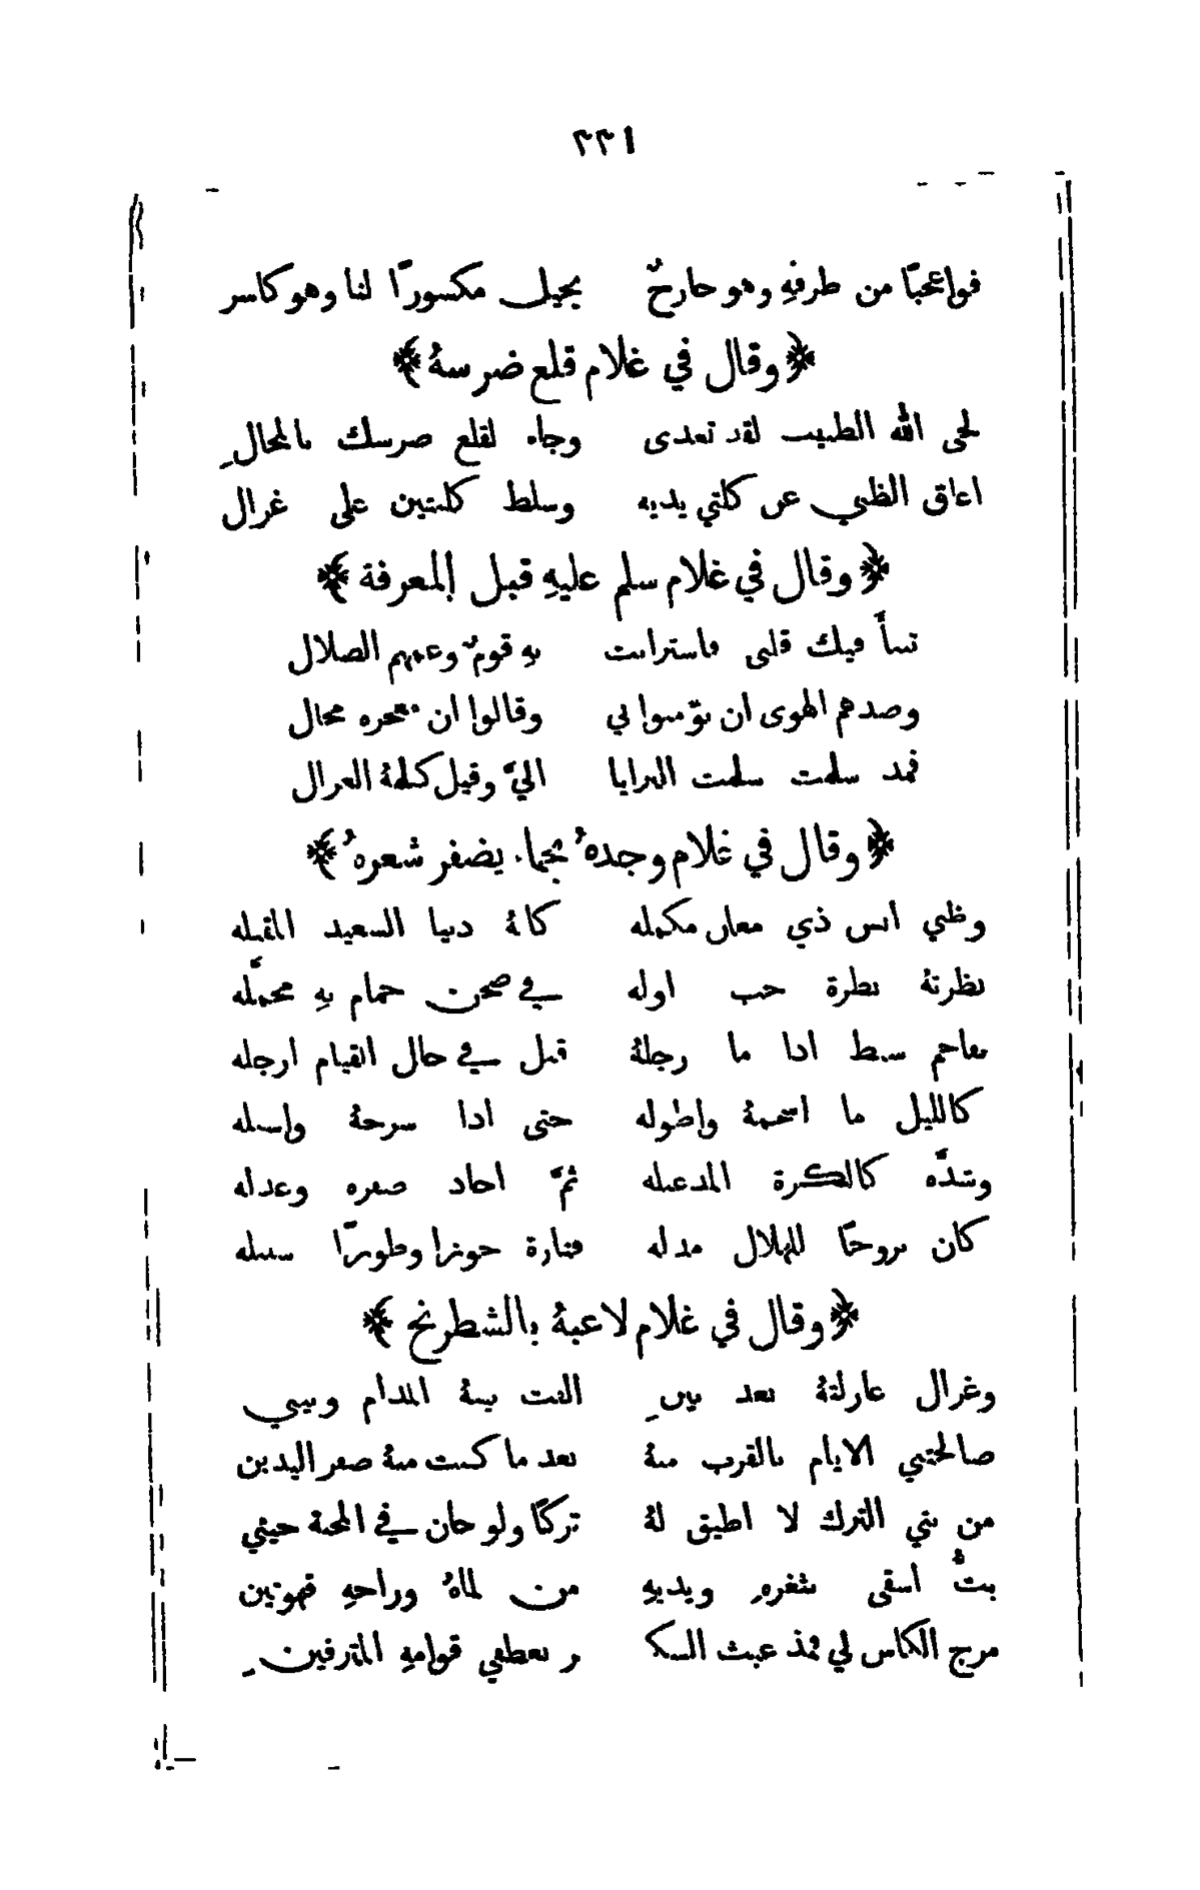 ٣٣١
فواعجبًا من طرفهِ وهو جارحٌ يجيك مكسورًا لنا وهو كاسر
﴿ وقال في غلام قلع ضرسهُ ﴾
لحى الله الطبيب لقد تعدى وجاء لقلع ضرسك بالمحالِ
اعاق الظبي عن كلتي يديه وسلط كلبتين على غزال
﴿ وقال في غلام سلم عليهِ قبل المعرفة ﴾
تنبأَ فيك قلبي فاسترابت بهِ قومٌ وعمهم الضلال
وصدهم الهوى ان يؤمنوا بي وقالوا ان معجزه محال
فمذ سلمت سلمت البرايا اليَّ وقيل كلمهُ الغزال
﴿ وقال في غلام وجدهُ بحماء يضفر شعرهُ ﴾
وظبي انس ذي معان مكمله كانهُ دنيا السعيد المقبله
نظرتهُ نظرة حب اوله في صحن حمام بهِ مجمَّله
بفاحم سبط اذا ما رجلهُ قبل في حال القيام ارجله
كالليل ما اسحمهُ واطوله حتى اذا سرحهُ واسبله
وشدَّه كالكرة ثمَّ اجاد ضفره وعدله
كان بروجًا للهلال مدله فتارة جوزا وطورًا سنبله
﴿ وقال في غلام لاعبهُ بالشطرنج ﴾
وغزال غازلتهُ بعد بينِ الفت بينهُ المدام وبيني
صالحتني الايام بالقرب منهُ بعد ما كنت منهُ صفر اليدين
من بني الترك لا اطيق لهُ تركًا ولو حان في المحبة حيني
بتُّ اسقى بثغرهِ ويديهِ من لماهُ وراحهِ قهوتين
مزج الكاس لي فمذ عبث السكـ ـر بعطفي قوامهِ المترفينِ